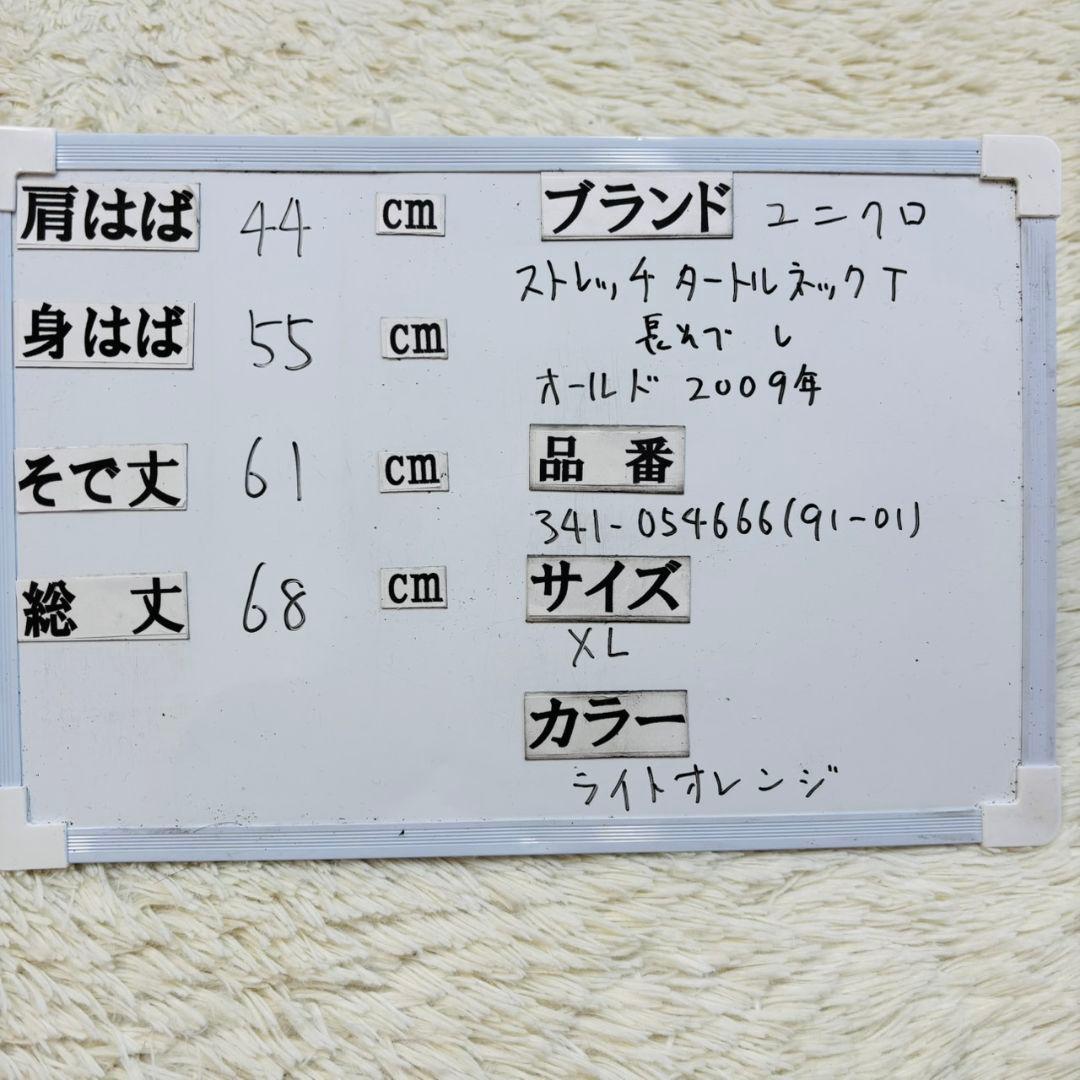 肩はば 44 cm
身はば 55 cm
そで丈 61 cm
総丈 68 cm
ブランド ユニクロ
ストレッチタートルネックT
長そで し
オールド 2009年
品番
341-054666(91-01)
サイズ
XL
カラー
ライトオレンジ